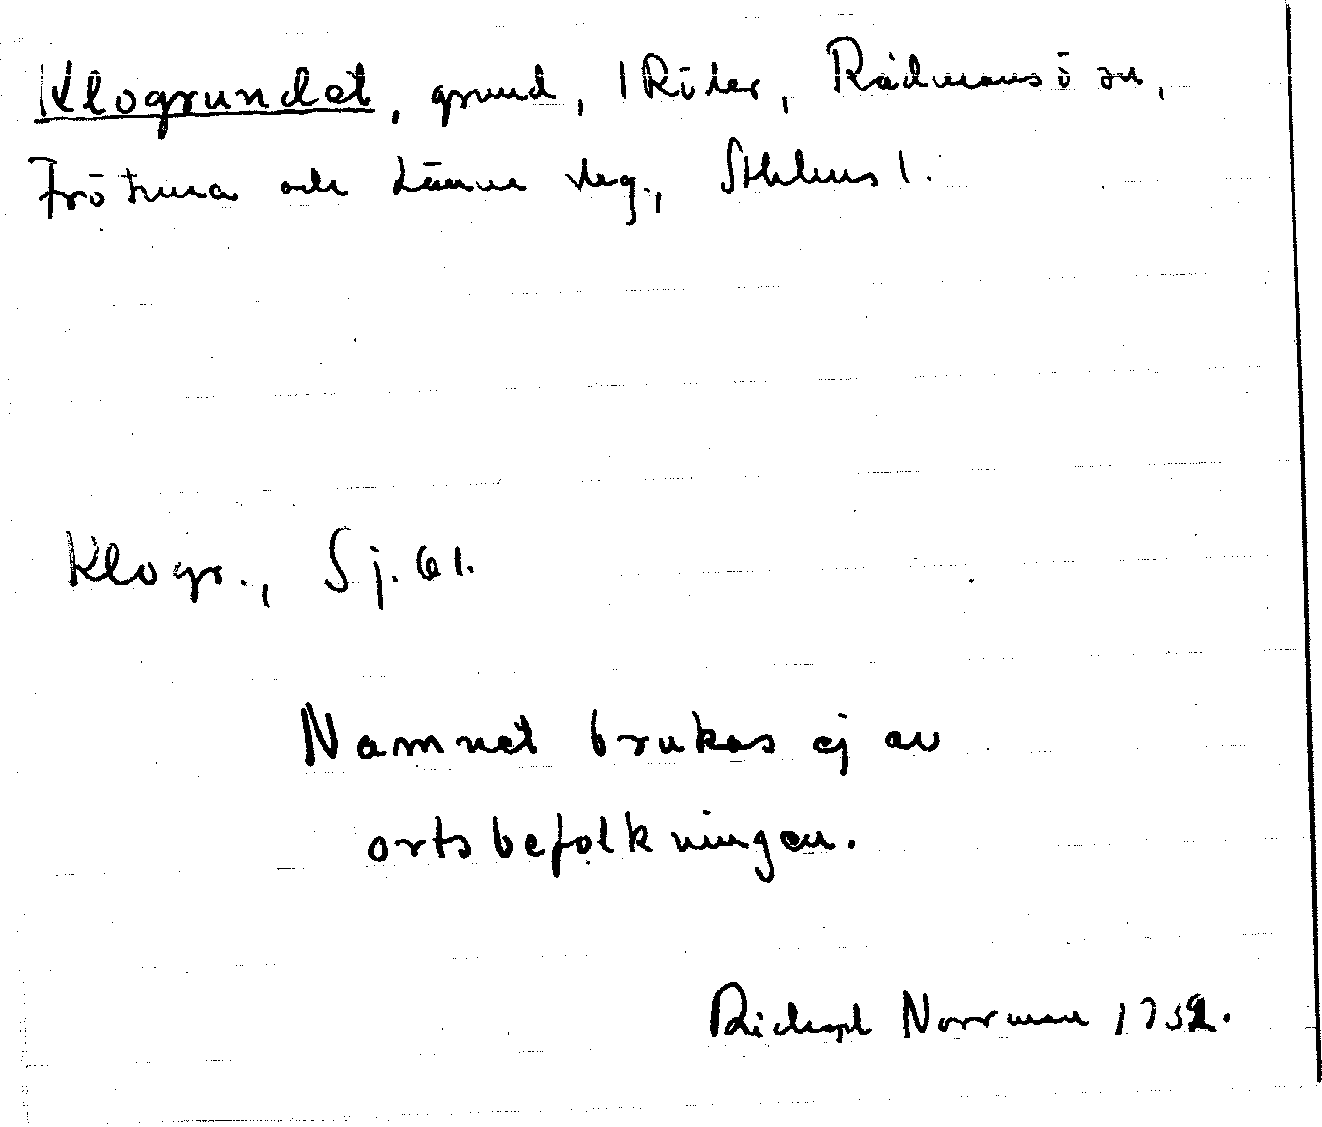 Klogrundet, grund, Röder, Rådmansö sn,
Frötuna och Länna skg., Sthlms l.
Klogr., Sj. 61.
Namnet brukas ej av
ortsbefolkningen.
Richard Norrman